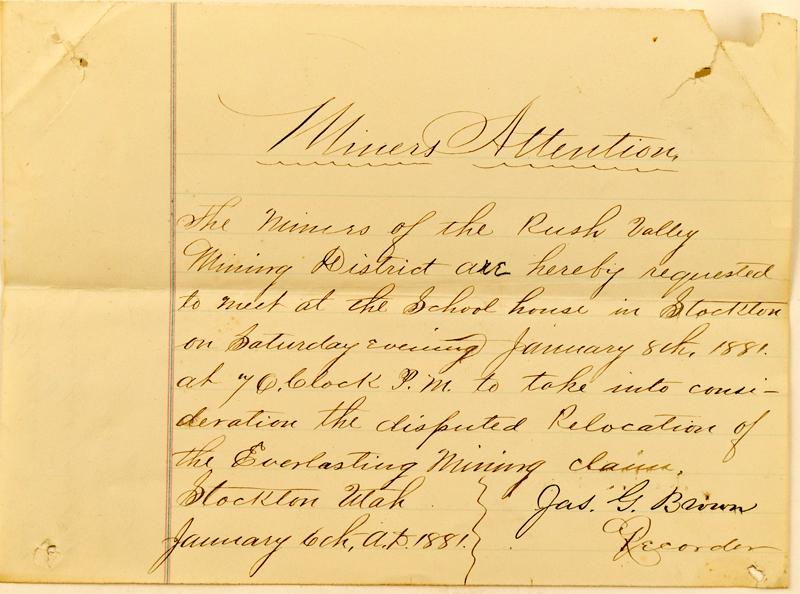 Miners Attention,
The Miners of the Rush Valley
Mining District are hereby requested
to meet at the School house in Stockton
on Saturday evening January 8th, 1881.
at 7 O.Clock P.M. to take into consi-
deration the disputed Relocation of
the Everlasting Mining claim.
Stockton Utah
January 6th, A.D. 1881.
Jas. G. Brown
Recorder